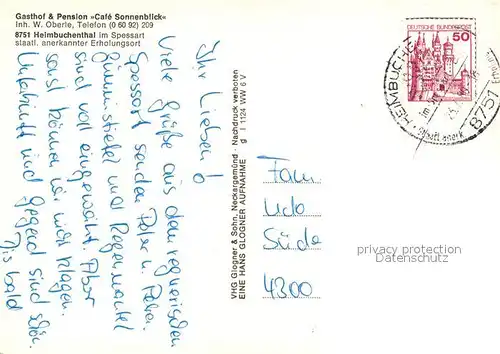 Gasthof & Pension »Café Sonnenblick«
Inh. W. Oberle, Telefon (0 60 92) 209
8751 Heimbuchenthal im Spessart
staatl. anerkannter Erholungsort
Ihr Lieben!
Viele Grüße aus dem regnerischen
Spessart senden Peter u. Petra.
Gummistiefel und Regenmantel
sind voll eingeweiht. Aber
sonst können wir nicht klagen.
Unterkunft und Gegend sind schön.
Bis bald
VHG Glogner & Sohn, Neckargemünd · Nachdruck verboten
EINE HANS GLOGNER AUFNAHME
g I 1124 WW 6 V
DEUTSCHE BUNDESPOST
50
HEIMBUCHE
8751
Staatl. anerk.
Fam
Udo
Süde
4300
privacy protection